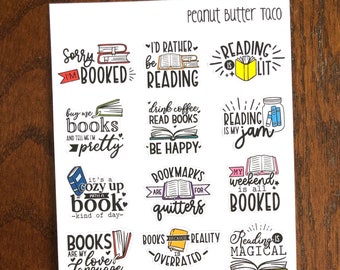 Peanut Butter Taco
Sorry
I'M
BOOKED
I'D RATHER
BE
READING
READING
IS
LIT
buy me
BOOKS
AND TELL ME I'M
pretty
drink coffee,
READ BOOKS
BE HAPPY
READING
IS MY jam
it's a
cozy up
WITH A
book
-kind of day-
BOOKMARKS
ARE FOR
quitters
MY
weekend
is all
BOOKED
BOOKS
ARE MY
love
language
BOOKS
BECAUSE
REALITY
IS
OVERRATED
Reading is
MAGICAL